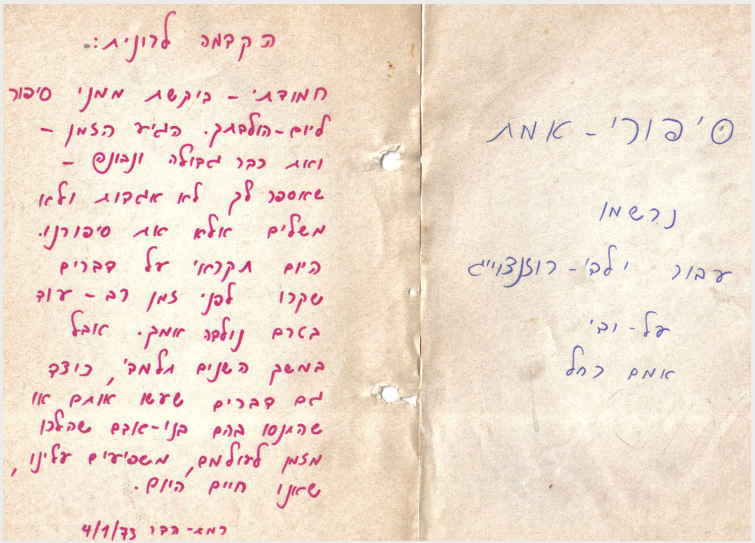 סיפורי - אמת
נרשמו
עבור ילדי - רוזנצוייג
על - ידי
אמם רחל
הקדמה לרונית:
חמודתי - ביקשת ממני סיפור
ליום - הולדתך. הגיע הזמן -
ואת כבר גדולה ונבונה -
שאספר לך לא אגדות ולא
משלים אלא את סיפורנו.
היום תקראי על דברים
שקרו לפני זמן רב - עוד
בטרם נולדה אמך. אבל
במשך השנים תלמדי, כיצד
גם דברים שעשו אותם או
שהתנסו בהם בני-אדם שהלכו
מזמן לעולמם, משפיעים עלינו,
שאנו חיים היום.
רמת - הדר 4/1/73